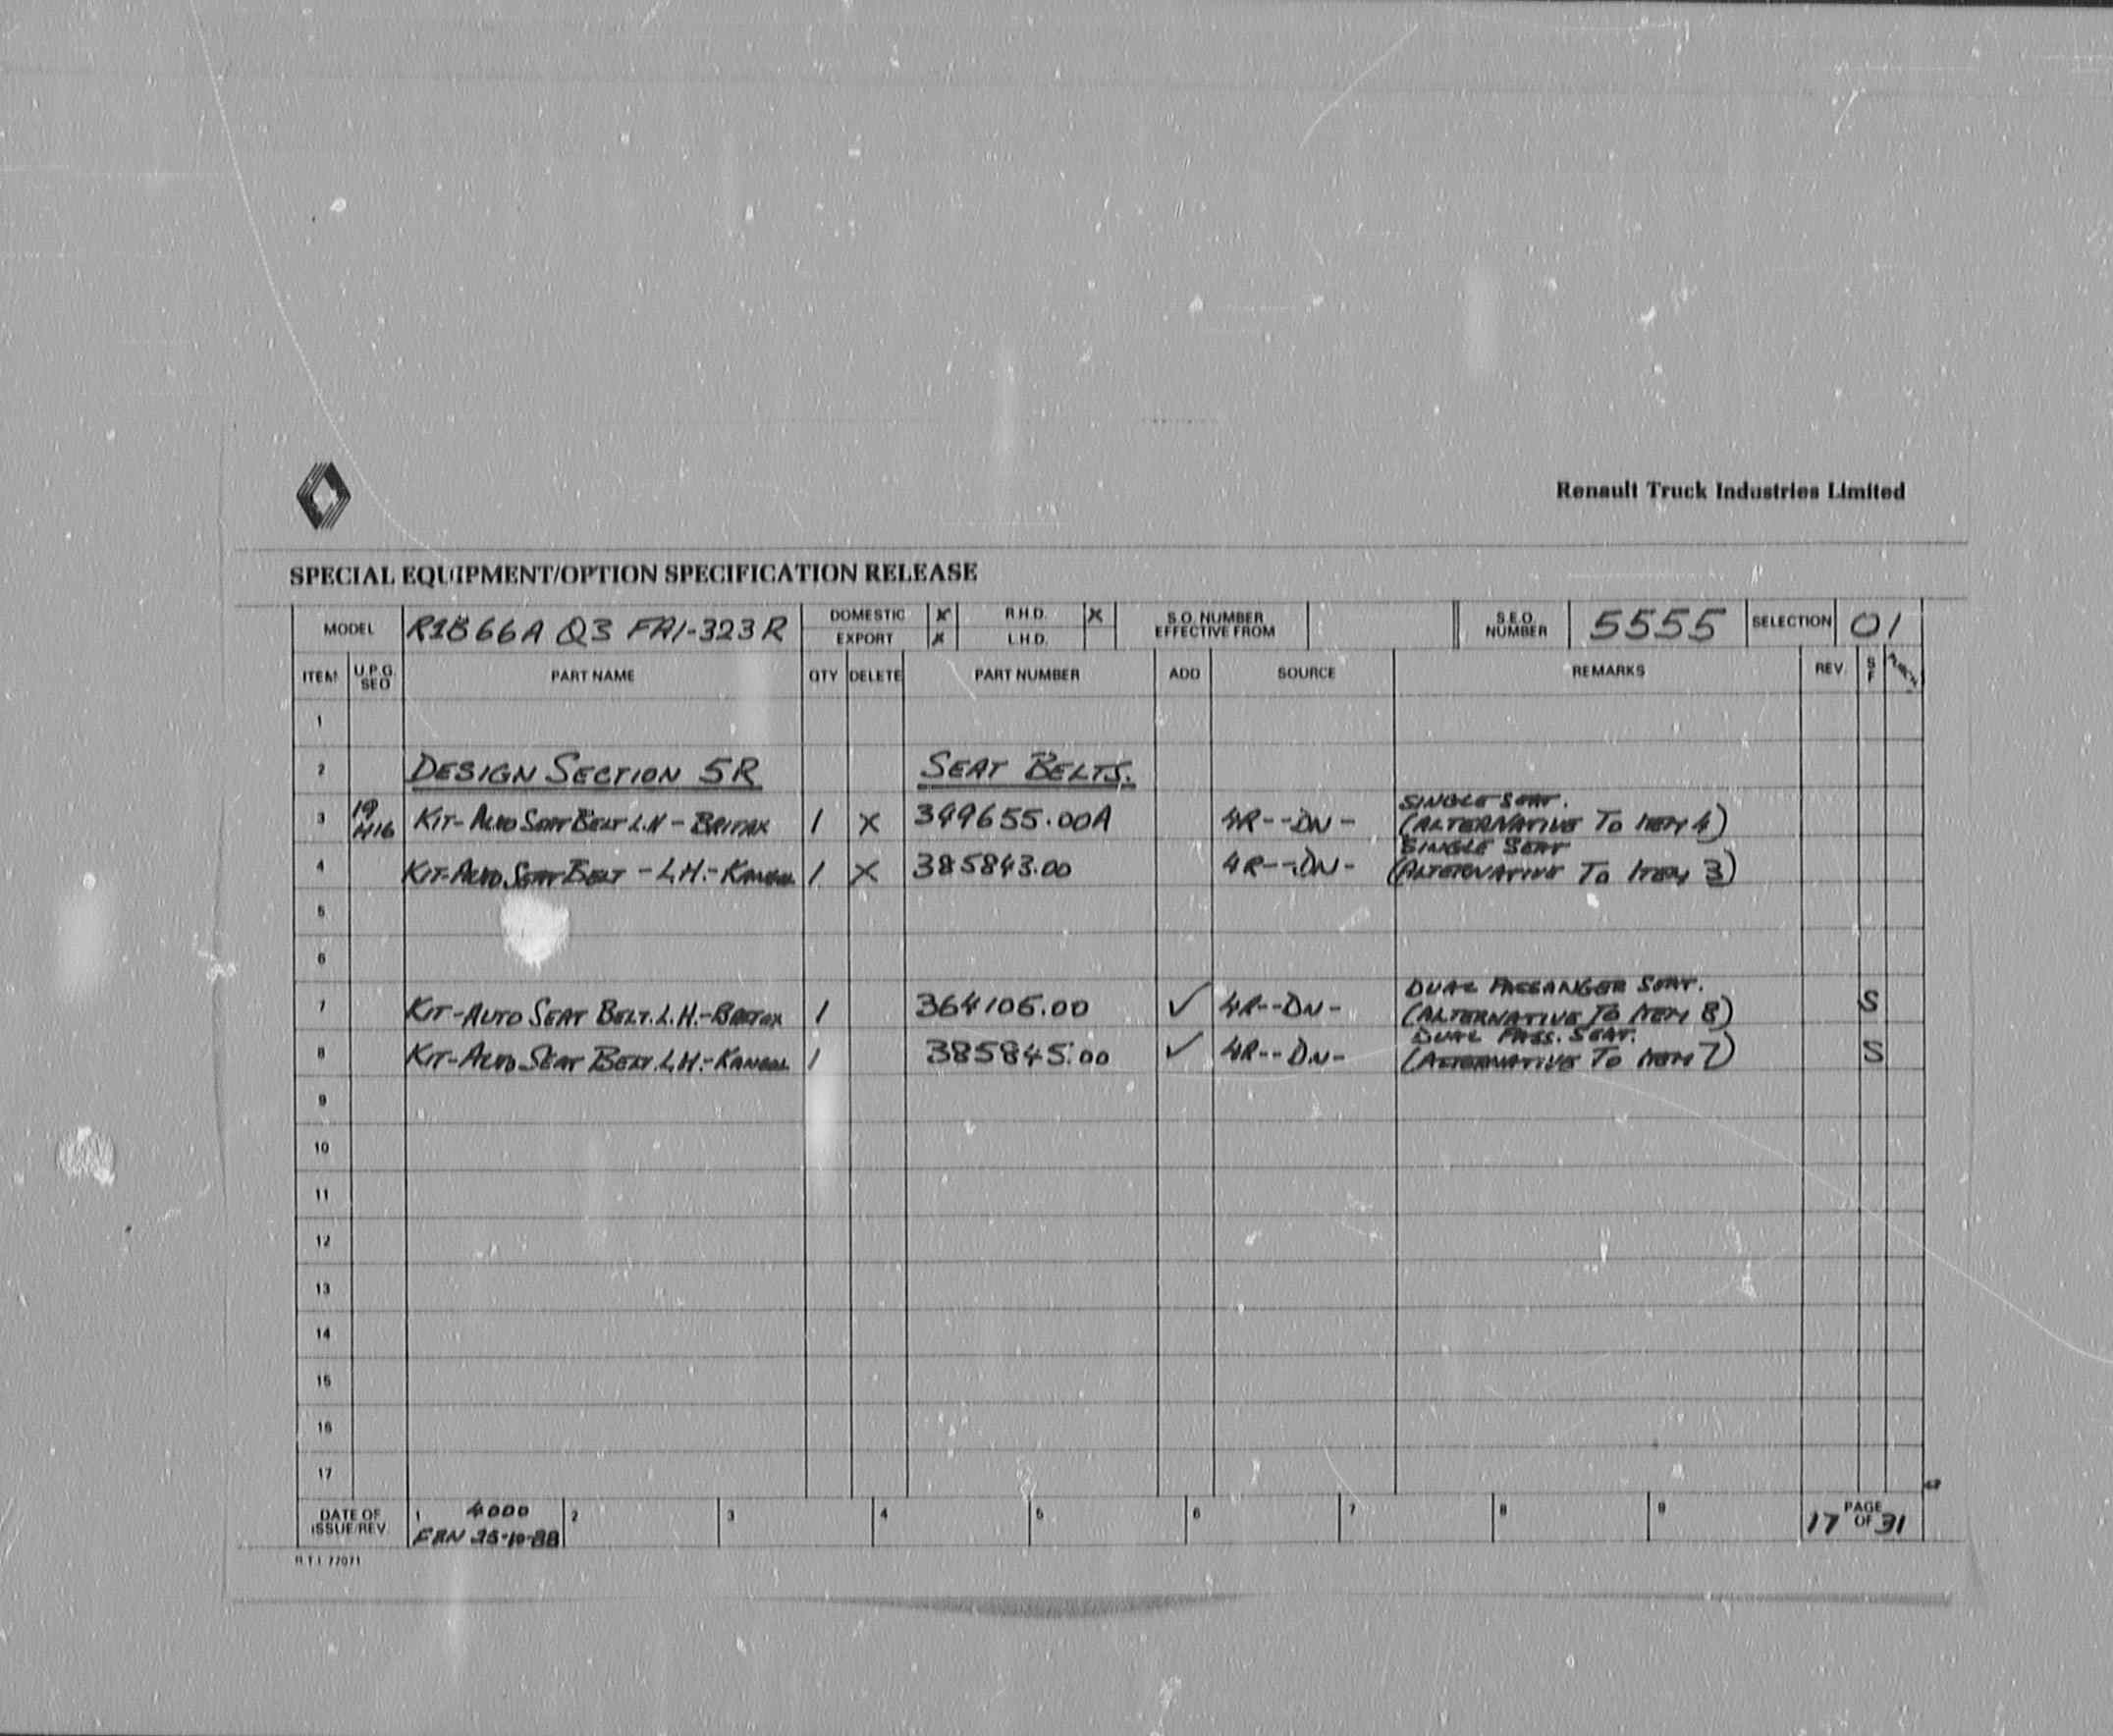 Renault Truck Industries Limited
SPECIAL EQUIPMENT/OPTION SPECIFICATION RELEASE
MODEL R1B66A Q3 FA1-323R DOMESTIC X R.H.D. X S.O. NUMBER EFFECTIVE FROM S.E.O. NUMBER 5555 SELECTION 01
EXPORT X L.H.D.
ITEM U.P.G. SEQ PART NAME QTY DELETE PART NUMBER ADD SOURCE REMARKS REV. S F
1
2 DESIGN SECTION 5R SEAT BELTS.
SINGLE SEAT.
3 19 KIT-AUTO SEAT BELT L.H-BRITAX 1 X 399655.00A 4R--DN- (ALTERNATIVE TO ITEM 4)
SINGLE SEAT
4 KIT-AUTO SEAT BELT-L.H.-KANGOL 1 X 385843.00 4R--DN- (ALTERNATIVE TO ITEM 3)
5
6
DUAL PASSANGER SEAT.
7 KIT-AUTO SEAT BELT.L.H.-BRITAX 1 364106.00 ✓ 4R--DN- (ALTERNATIVE TO ITEM 8) S
DUAL PASS. SEAT.
8 KIT-AUTO SEAT BELT.L.H.-KANGOL 1 385845.00 ✓ 4R--DN- (ALTERNATIVE TO ITEM 7) S
9
10
11
12
13
14
15
16
17
DATE OF ISSUE/REV. 1 4000 2 3 4 5 6 7 8 9 PAGE 17 OF 31
R.T.I. 77071